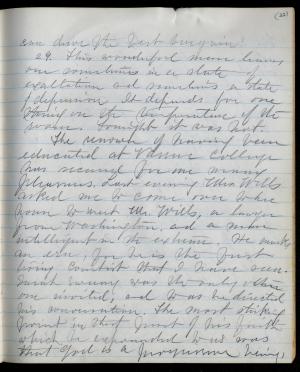 (22)
can drive the best bargain.
29. This wonderful moon leaves
one sometimes in a state of
exaltation and sometimes in a state
of depression. It depends for one
thing on the temperature of the
water. Tonight it was hot.
The renown of having been
educated at Vassar College
has secured for me many
pleasures. Last evening Miss Wills
asked me to come over to her
room to meet Mr. Wills, a lawyer
from Washington, and a man
intelligent in the extreme. He marks
an era for he is the first
living Comtist that I have seen.
Miss was the only other
one invited, and to us he directed
his conversation. The most striking
point in that part of his faith
which he expounded to us was
that God is a progressive being,